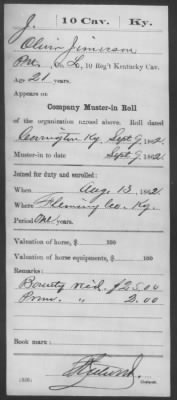 J. 10 Cav. Ky.
Oliver Jimerson
Pvt., Co. L, 10 Reg't Kentucky Cav.
Age 21 years.
Appears on
Company Muster-in Roll
of the organization named above. Roll dated
Covington, Ky. Sept 9, 1862.
Muster-in to date Sept 9, 1862.
Joined for duty and enrolled:
When Aug. 13, 1862.
Where Fleming Co. Ky.
Period One years.
Valuation of horse, $ 100
Valuation of horse equipments, $ 100
Remarks:
Bounty rec'd. $25.00
Prem. " 2.00
Book mark:
Copyist.